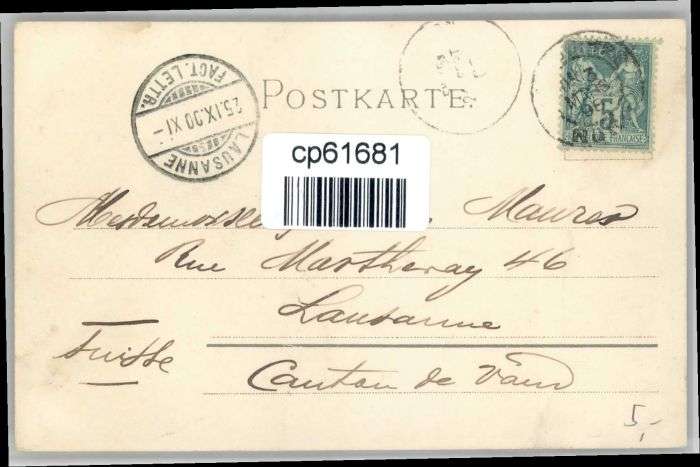 LAUSANNE
25.IX.00 XI-
FACT. LETTR.
POSTKARTE.
5
cp61681
Mesdemoiselles Maurer
Rue Martheray 46
Lausanne
Suisse
Canton de Vaud
5,-